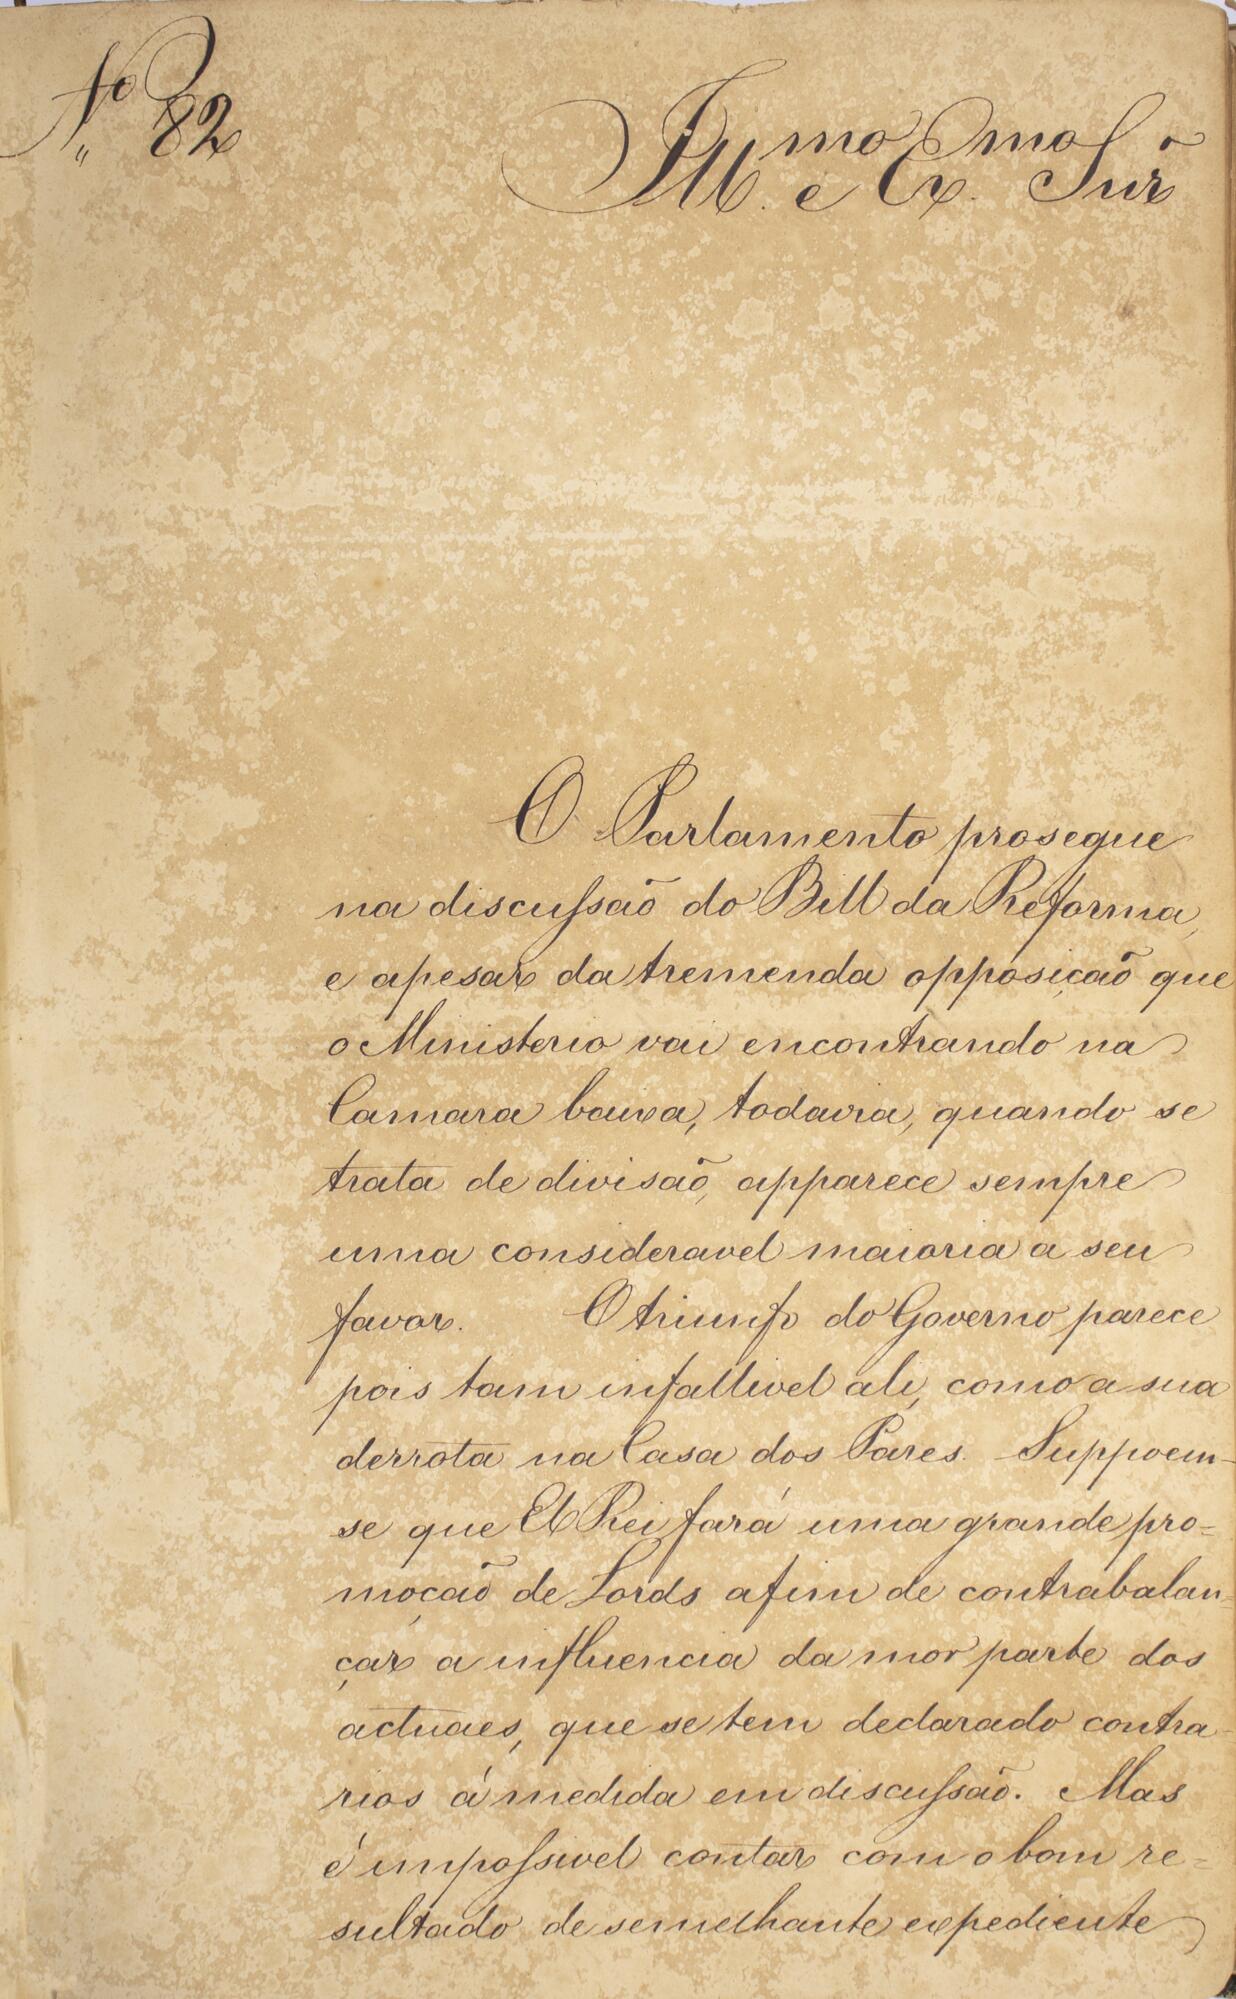 Nº 82
Illmo e Exmo Snr̃
O Parlamento prosegue
na discussaõ do Bill da Reforma,
e apesar da tremenda opposiçaõ que
o Ministerio vai encontrando na
Camara baixa, todavia, quando se
trata de divisaõ, apparece sempre
uma consideravel maioria a seu
favor. O triunfo do Governo parece
pois tam infallivel ali, como a sua
derrota na Casa dos Pares. Suppoem-
se que El Rei fará uma grande pro=
moçaõ de Lords afim de contrabalan=
çar a influencia da mor parte dos
actuaes, que se tem declarado contra-
rios á medida em discussaõ. Mas
é impossivel contar com o bom re=
sultado de semelhante expediente